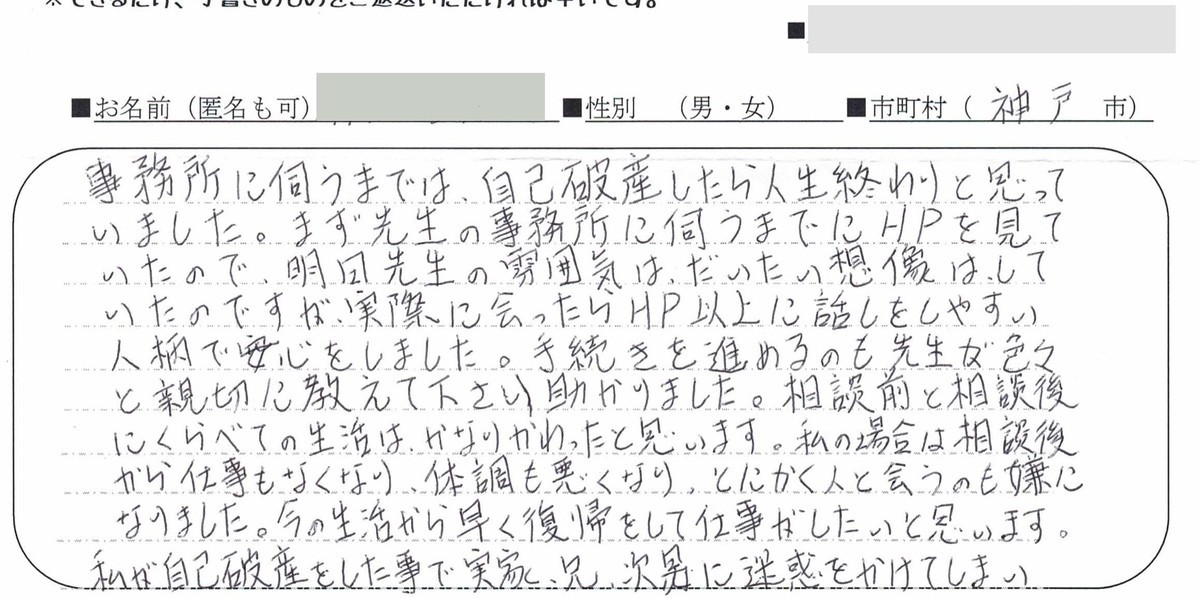 ※できるだけ、手書きのものをご返送いただければ幸いです。
■
■お名前（匿名も可） ■性別 （男・女） ■市町村（ 神戸 市）
事務所に伺うまでは、自己破産したら人生終わりと思って
いました。まず先生の事務所に伺うまでにHPを見て
いたので、明日先生の雰囲気は、だいたい想像は、して
いたのですが、実際に会ったらHP以上に話しをしやすい
人柄で安心をしました。手続きを進めるのも先生が色々
と親切に教えて下さり助かりました。相談前と相談後
にくらべての生活は、かなりかわったと思います。私の場合は相談後
から仕事もなくなり、体調も悪くなり、とにかく人と会うのも嫌に
なりました。今の生活から早く復帰をして仕事がしたいと思います。
私が自己破産をした事で実家、兄、次男に迷惑をかけてしまい